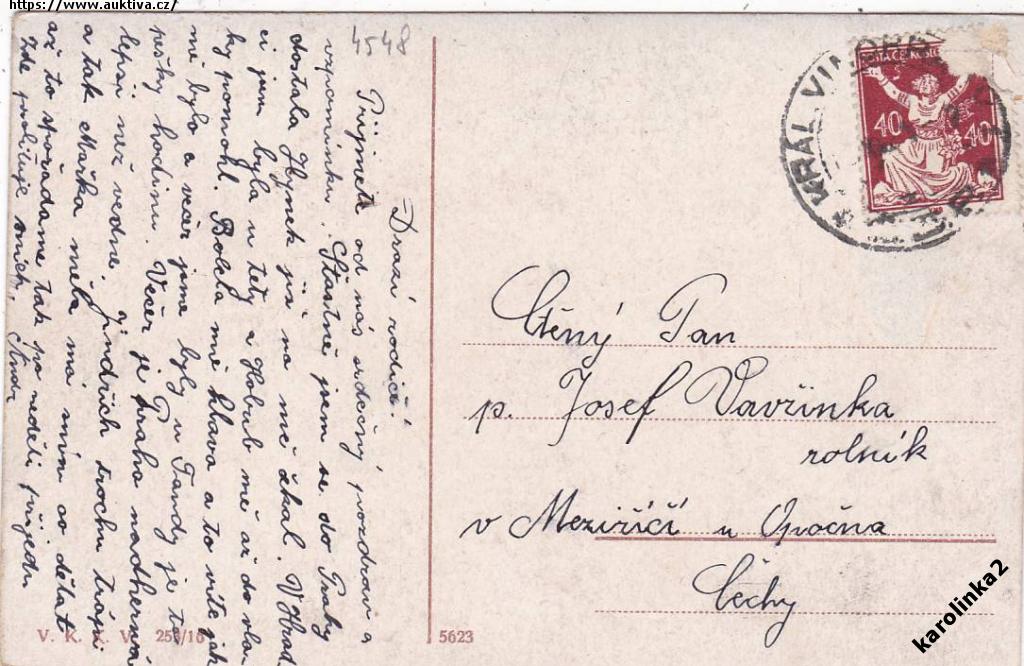 https://www.auktiva.cz/
4548
Drazí rodiče!
Přijměte od nás srdečný pozdrav a
vzpomínku. Šťastně jsem se do Prahy
dostala Hynek již na mě čekal. V Hrad
ci jsem byla u tety a Holub mě až do vla
ky pomohl. Bolela mě hlava a to víte jak
mi bylo a večer jsme byly u Fandy je to
pěšky hodinu. Večer je Praha nádherná
lepší než ve dne. Jindřich trochu trápí
a tak Mařka měla má s ním co dělat
až to spořádáme tak po neděli přijedu
Zde poličuje smích,
V. K. K. V. 258/16
5623
KRÁL. VINOHR
POŠTA ČESKOSLO
40
40
Ctěný Pan
p. Josef Vavřinka
rolník
v Meziříčí u Opočna
Čechy
karolinka2